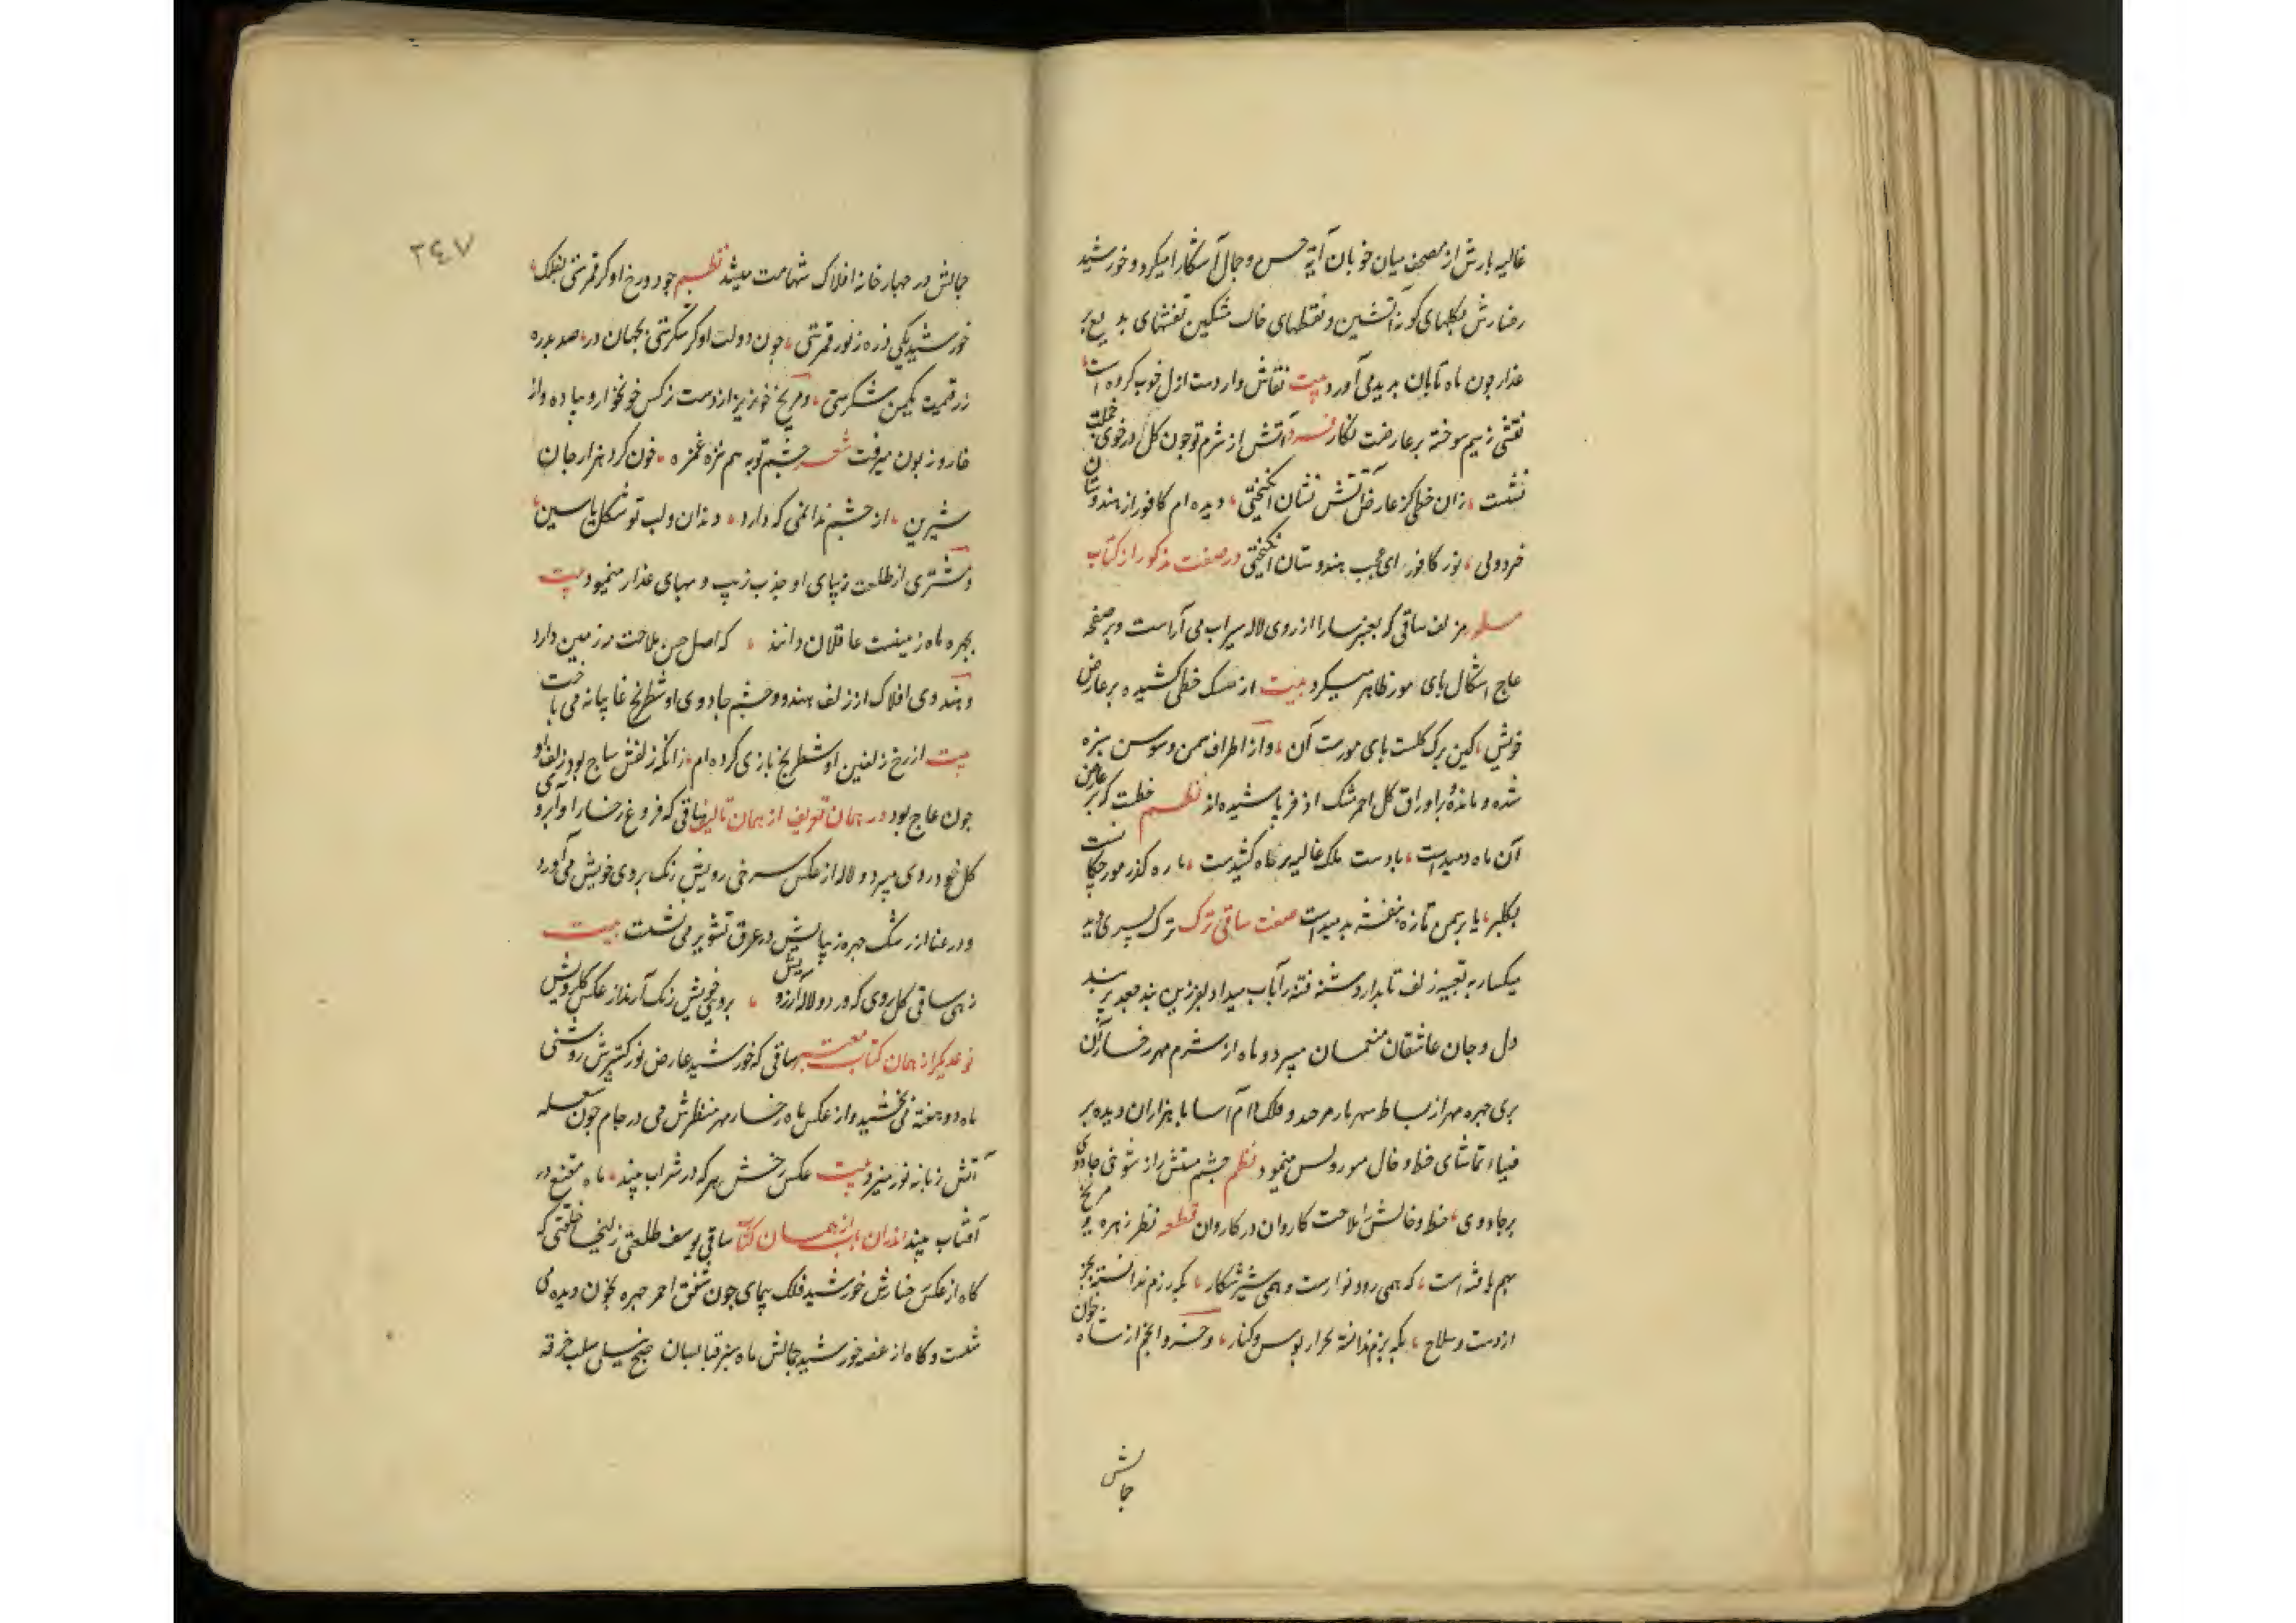 غالیه بارش از مصحف میان خوبان آیه حسن و جمال آشکارا میکرد و خورشید
رخسارش بگلهای کوزه آتشین و نقطهای خال مشکین نقشهای بدیع بر
عذار چون ماه تابان بدید می آورد بیت نقاش وار دست ازل خوب کرده است
نقشی ز سیم سوخته بر عارضت نگار فرد آتش از شرم تو چون گل در خوی خجلت
نشست ، زان خطی کز عارض آتش نشان انگیختی ، دیده ام کافور از هندوستان
خرد ولی ، نور کافور ای عجب هندوستان انگیختی در صفت مذکور از کتاب
مسطور هر زلف ساقی که بعنبر سارا از روی لاله سیراب می آراست و بر صفحه
عاج اشکال پای مور ظاهر میکرد بیت از مشک خطی کشیده بر عارض
خویش ، کین برک کلست پای مورست آن ، و از اطراف سمن و سوسن سبزه
شده و مانده بر اوراق کل احمر مشک اذفر پاشیده اند نظم خطت که بر عارض
آن ماه دمیدست ، یا دست ملک غالیه بر ماه کشیدست ، یا ره گذر مورچکانست
بکلبر ، یا بر سمن تازه بنفشه بدمیدست صفت ساقی ترک ترک پسری
میکسار به تعبیه زلف تابدار دشنه فتنه را آب میداد و بعزیزین بند جعد بر بند
دل و جان عاشقان منحسان میبرد و ماه از شرم مهر رخسار آن
بری چهره مهر از بساط سپهر بار مرحد و فلک آسا با هزاران دیده بر
ضیاء تماشای خط و خال مور ولس مینمود نظم چشم مستش راز شوخی جادوی
بر جادوی ، خط و خالش را ملاحت کاروان در کاروان قطعه نظر زهره و مریخ
بهم یافته است ، که همی رود نوازست و همی شیر شکار ، بگه رزم ندانسته بجز
از دست و سلاح ، بگه بزم ندانسته بجز از بوس و کنار ، و خسرو انجم از نشاه جوان
جمالش
۲۴۷
جمالش در چهار خانه افلاک شهامت میشد نظم جود و رخ او کر قمرستی بفلک ،
خورشید یکی ذره ز نور قمرستی ، چون دولت او کر شکرستی بجهان در ، صد بدره
زر قیمت یکمن شکرستی ، و مریخ خونریز از دست نرکس خونخوار و باده واز
خار و زبون میرفت شعر چشم تو بهم مژه غمزه ، خون کرد هزار جان
شیرین ، از چشم ندانمی که دارد ، دندان و لب تو شکل یاسین ،
و مشتری از طلعت زیبای او جذب زیب و بهای عذار مینمود بیت
بچهره ماه زمینست عاقلان دانند ، که اصل حسن ملاحت در زمین دارد
و هندوی افلاک از زلف هندو و چشم جادوی او شطرنج غایبانه می باخت
بیت از رخ و زلفین او شطرنج بازی کرده ام ، زانکه زلفش ساج بود و زلف او
چون عاج بود در همان تعریف از همان تالیف ساقی که فروغ رخسار او آبروی
کل خود روی میبرد و لاله از عکس سرخی رویش رنک بروی خویش می آورد
و درعنا از رشک چهره زیبایش در عرق تشویر می نشست بیت
زهی ساقی کل روی که ورد و لاله آرزویش ، بروی خویش رنک آرند از عکس کل رویش
نوعدیکر از همان کتاب معتبر ساقی که خورشید عارض نور کسترش روشنی
ماه دو هفته می بخشید و از عکس ماه رخسار مهر منظرش می در جام چون شعله
آتش زبانه نور میزد بیت عکس رخش هر که در شراب بیند ، ماه مقنع در
آفتاب بیند اندران باب از همان کتاب ساقی یوسف طلعتی زلیخا خلقتی که
کاه از عکس رخسارش خورشید فلک پیمای چون شفق احمر چهره بخون دیده می
شست و کاه از غصه خورشید جمالش ماه سبز قبا بسان صبح نیلی سلب خرقه